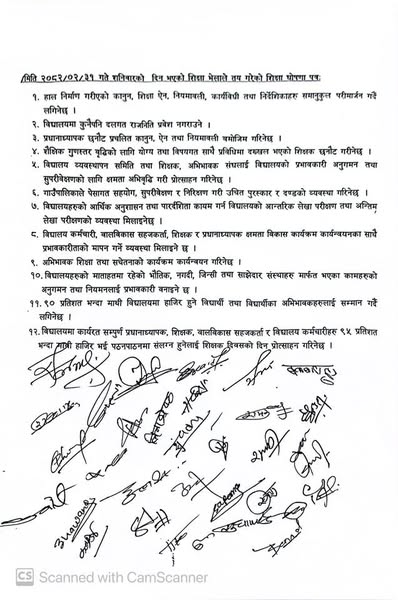 मिति २०८२/०२/३१ गते शनिवारको दिन भएको शिक्षा भेलाले तय गरेको शिक्षा घोषणा पत्र:
१. हाल निर्माण गरीएको कानुन, शिक्षा ऐन, नियमावली, कार्यविधी तथा निर्देशिकाहरु समानुकुल परीमार्जन गर्दै
लगिनेछ ।
२. विद्यालयमा कुनैपनि दलगत राजनिति प्रवेश नगराउने ।
३. प्रधानाध्यापक छनौट प्रचलित कानुन, ऐन तथा नियमावली बमोजिम गरिनेछ ।
४. शैक्षिक गुणस्तर बृद्धिको लागि योग्य तथा विषयगत साथै प्रविधिमा दख्खल भएको शिक्षक छनौट गरीनेछ ।
५. विद्यालय व्यवस्थापन समिति तथा शिक्षक, अभिभावक संघलाई विद्यालयको प्रभावकारी अनुगमन तथा
सुपरीवेक्षणको लागि क्षमता अभिवृद्धि गरी प्रोत्साहन गरिनेछ ।
६. गाउँपालिकाले पेसागत सहयोग, सुपरीवेक्षण र निरिक्षण गरी उचित पुरस्कार र दण्डको व्यवस्था गरिनेछ ।
७. विद्यालयहरुको आर्थिक अनुशासन तथा पारदर्शिता कायम गर्न विद्यालयको आन्तरिक लेखा परीक्षण तथा अन्तिम
लेखा परीक्षणको व्यवस्था मिलाइनेछ ।
८. विद्यालय कर्मचारी, बालविकास सहजकर्ता, शिक्षक र प्रधानाध्यापक क्षमता विकास कार्यक्रम कार्यन्वयनका साथै
प्रभावकारीताको मापन गर्ने व्यवस्था मिलाइने छ ।
९. अभिभावक शिक्षा तथा सचेतनाको कार्यक्रम कार्यन्वयन गरिनेछ ।
१०. विद्यालयहरुको मातहतमा रहेको भौतिक, नगदी, जिन्सी तथा साझेदार संस्थाहरु मार्फत भएका कामहरुको
अनुगमन तथा नियमनलाई प्रभावकारी बनाइने छ ।
११. ९० प्रतिशत भन्दा माथी विद्यालयमा हाजिर हुने विद्यार्थी तथा विद्यार्थीका अभिभावकहरुलाई सम्मान गर्दै
लगिनेछ ।
१२. विद्यालयमा कार्यरत सम्पुर्ण प्रधानाध्यापक, शिक्षक, बालविकास सहजकर्ता र विद्यालय कर्मचारीहरु ९५ प्रतिशत
भन्दा माथी हाजिर भई पठनपाठनमा संलग्न हुनेलाई शिक्षक दिवसको दिन प्रोत्साहन गरिनेछ ।
CS Scanned with CamScanner